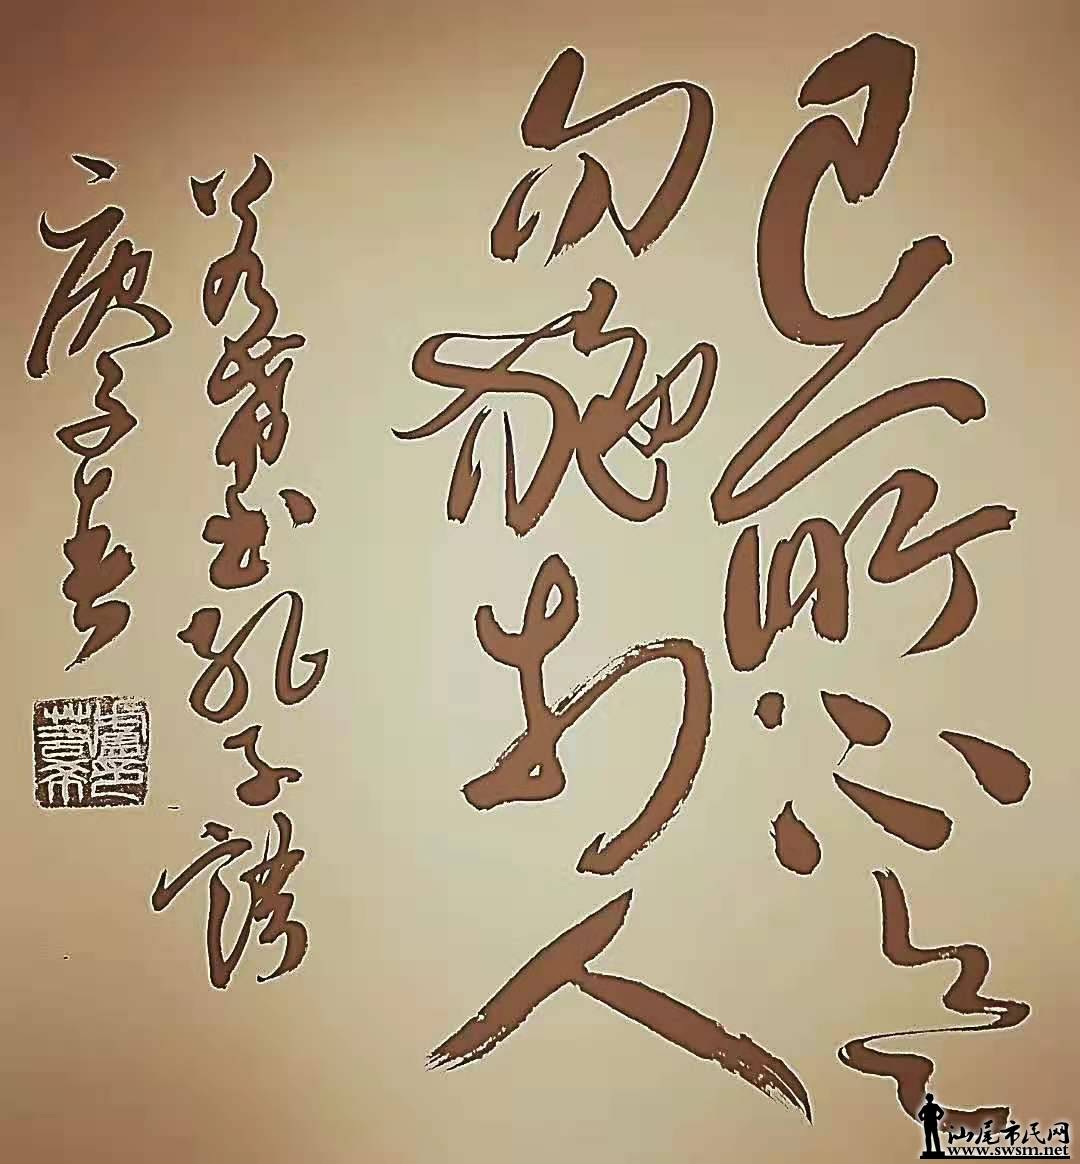 己所不欲
勿施於人
书孔子語
庚子春
汕尾市民网
www.swsm.net